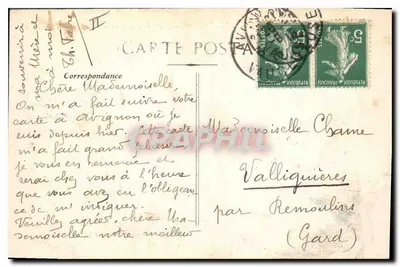 II
CARTE POSTALE
Correspondance
souvenir à
ma Mère et
à moi
Th. Fabre
Chère Mademoiselle,
On m'a fait suivre votre
carte à Avignon où je
suis depuis hier. Cette carte
m'a fait grand plaisir.
Je vous en remercie et
serai chez vous à l'heure
que vous avez eu l'obligeance
de m'indiquer.
Veuillez agréer, chère Ma-
demoiselle notre meilleur
Mademoiselle Chame
Valliguières
par Remoulins
(Gard)
5
5
REPUBLIQUE FRANÇAISE
REPUBLIQUE FRANÇAISE
CPAPHIL